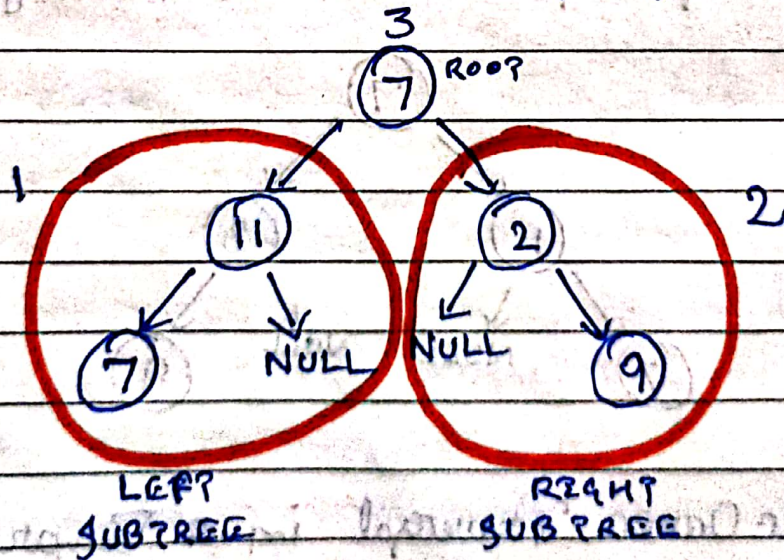 3
7 ROOT
1
11
2
2
7
NULL
NULL
9
LEFT
SUBTREE
RIGHT
SUBTREE